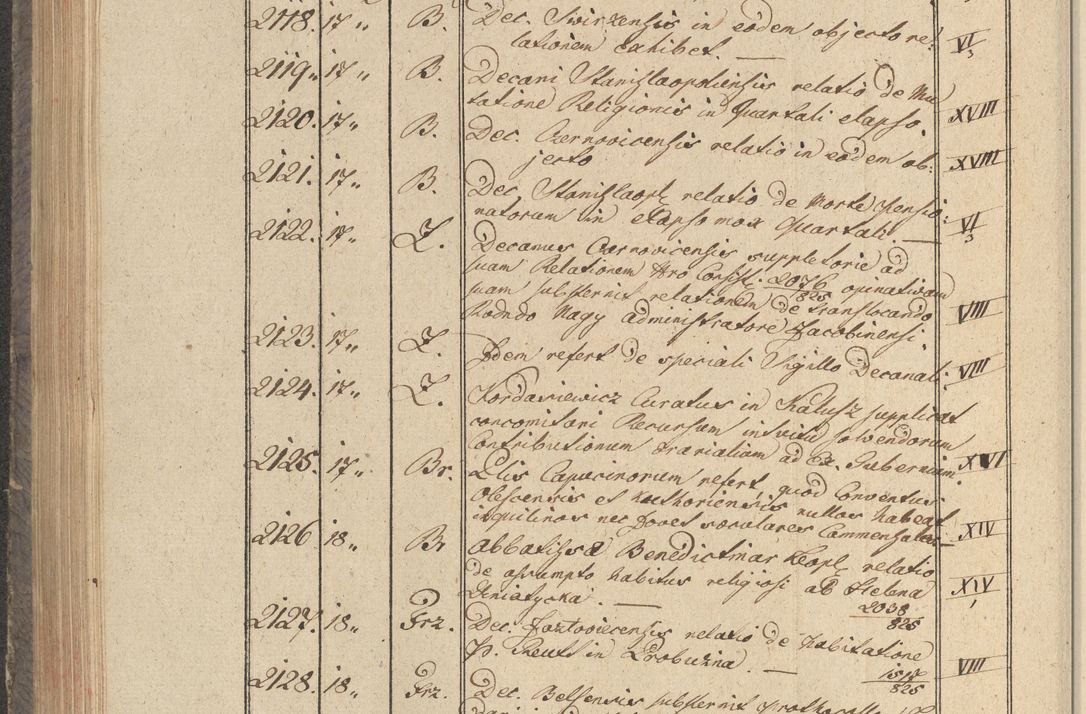 2118. 17 " B. Dec. Swirzensis in eodem objecto re=
lationem exhibet. — VI/3
2119 " 17 " B. Decani Stanislaopoliensis relatio de Mu
tatione Religionis in Quartali elapso. XVIII
2120. 17 " B. Dec. Czernovicensis relatio in eodem ob=
jecto XVIII
2121. 17 " B. Dec. Stanislaopl relatio de Morte Pensio=
natorum in elapso mox Quartali. — VI/3
2122. 17 " Z. Decanus Czernovicensis suppletorie ad
suam Relationem Nro Consist: 2076/825 opinativam
suam substernit relationem de translocando
Rdndo Nagy administratore Jacobinensi. VIII
2123. 17 " Z. Idem refert de speciali Sigillo Decanali. VIII
2124. 17 " Z. Jordasiewicz Curatus in Kalusz supplicat
concomitari Recursum intuitu solvendorum
Contributionum aerarialium ad Ex. Gubernium. XVI
2125. 17 " Br. Capucinorum refert, quod Conventus
Olescensis et Kutkoriensis nullos habeat
inquilinos nec foves saeculares Commensales — XIV
2126 18 " Br Abbatissa Benedictinar Leopl relatio
de assumpto habitus religiosi ab Helena
Uniatycka. — 2038/825 XIV/1
2127. 18 " Frz. Dec. Jazłoviecensis relatio de habitatione
P. Reutt in Probuzna. — 1517/825 VIII
2128. 18 " Frz. Dec. Belsensis substernit